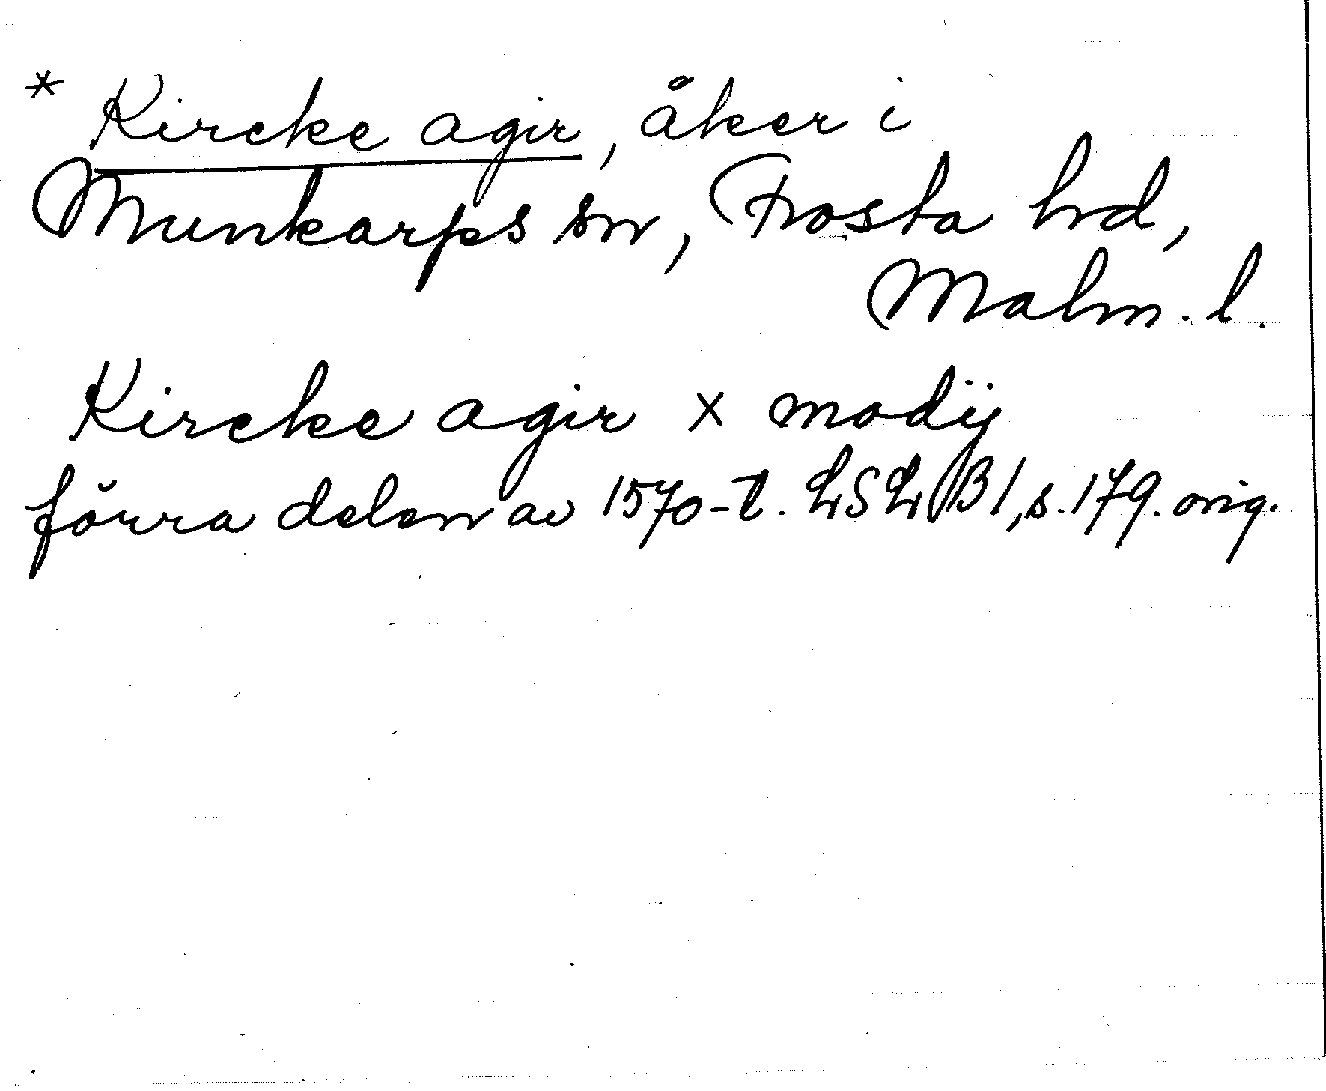 * Kircke agir, åker i
Munkarps sn, Frosta hrd,
Malm. l.
Kircke agir x modij
förra delen av 1570-t. LSLB1, s. 179. orig.